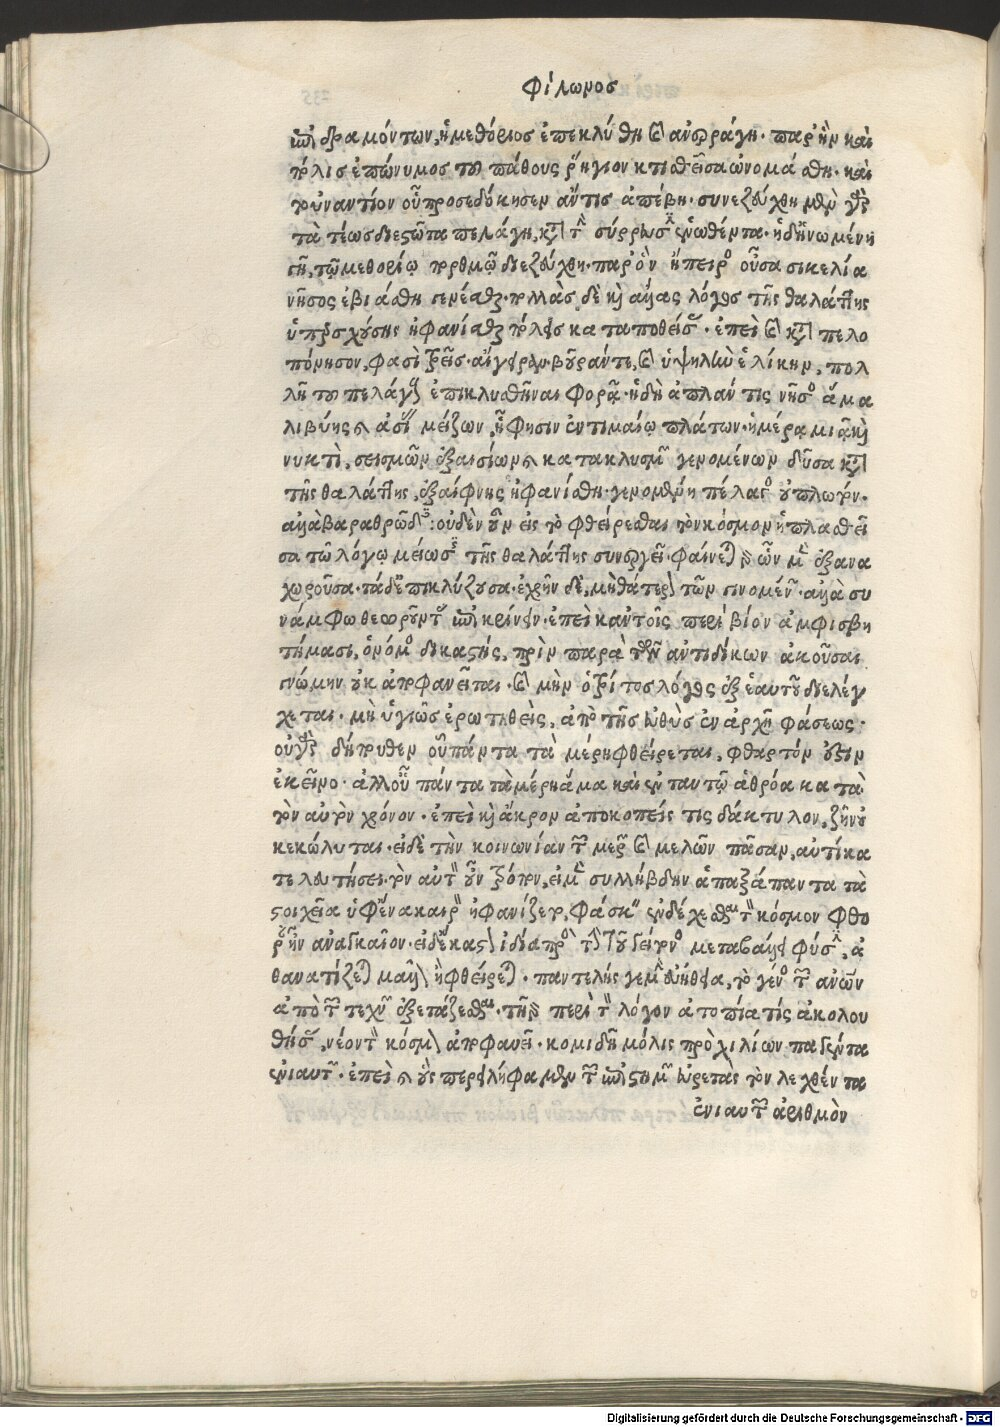 Φίλωνος
ἐπιδραμόντων, ἡ μεθόριος ἐπεκλύσθη καὶ ἀνερράγη. παρ' ἣν καὶ
πόλις ἐπώνυμος τοῦ πάθους ῥήγιον κτισθεῖσα ὠνομάσθη. καὶ
τοὐναντίον οὗ προσεδόκησεν ἄν τις ἀπέβη. συνεζεύχθη μὲν γὰρ
τὰ τέως διεστῶτα πελάγη, κατὰ τὴν σύρρυσιν ἑνωθέντα. ἡ δ' ἡνωμένη
γῆ, τῷ μεθορίῳ πορθμῷ διεζεύχθη. παρ' ὃν ἤπειρος οὖσα σικελία
νῆσος ἐβιάσθη γενέσθαι. πολλὰς δὲ καὶ ἄλλας λόγος τῆς θαλάττης
ὑπερσχούσης ἠφανίσθαι πόλεις καταποθείσας. ἐπεὶ καὶ κατὰ πελο
πόννησον, φασὶ τρεῖς. αἴγειραν βοῦράν τε, καὶ ὑψηλὴν ἑλίκην, πολ
λῇ τοῦ πελάγους ἐπικλυσθῆναι φορᾷ. ἡ δὴ ἀτλαντὶς νῆσος ἅμα
λιβύης καὶ ἀσίας μείζων, ᾗ φησιν ἐν τιμαίῳ πλάτων. ἡμέρᾳ μιᾷ καὶ
νυκτὶ, σεισμῶν ἐξαισίων καὶ κατακλυσμῶν γενομένων δῦσα κατὰ
τῆς θαλάττης, ἐξαίφνης ἠφανίσθη. γενομένη πέλαγος οὐ πλωτόν.
ἀλλὰ βαραθρῶδες: οὐδὲν οὖν εἰς τὸ φθείρεσθαι τὸν κόσμον ἡ πλασθεῖ
σα τῷ λόγῳ μείωσις τῆς θαλάττης συνεργεῖ. φαίνεται γὰρ ὧν μὲν ἐξανα
χωροῦσα. τὰ δ' ἐπικλύζουσα. ἐχρῆν δὲ, μὴ θάτερον τῶν γινομένων. ἀλλὰ συ
νάμφω θεωροῦντας ἐπικρίνειν. ἐπεὶ κἀν τοῖς περὶ βίον ἀμφισβη
τήμασι, ὁ νόμος δικαστὴς, πρὶν παρὰ τῶν ἀντιδίκων ἀκοῦσαι
γνώμην οὐκ ἀποφανεῖται. καὶ μὴν ὁ τρίτος λόγος ἐξ ἑαυτοῦ διελέγ
χεται. μὴ ὑγιῶς ἐρωτηθεὶς, ἀπὸ τῆς εὐθὺς ἐν ἀρχῇ φάσεως.
οὐ γὰρ δήπουθεν οὗ πάντα τὰ μέρη φθείρεται, φθαρτόν ἐστιν
ἐκεῖνο. ἀλλ' οὗ πάντα τὰ μέρη ἅμα καὶ ἐν ταυτῷ ἀθρόα κατὰ
τὸν αὐτὸν χρόνον. ἐπεὶ καὶ ἄκρον ἀποκοπείς τις δάκτυλον, ζῆν οὐ
κεκώλυται. εἰ δὲ τὴν κοινωνίαν τῶν μερῶν καὶ μελῶν πᾶσαν, αὐτίκα
τελευτήσει. τὸν αὐτὸν οὖν τρόπον, εἰ μὲν συλλήβδην ἅπαξ ἅπαντα τὰ
στοιχεῖα ὑφ' ἕνα καιρὸν ἠφανίζετο, φάσκειν ἐνδέχεσθαι τὸν κόσμον φθο
ρὰν ἀναγκαῖον. εἰ δὲ ἕκαστον ἰδίᾳ πρὸς τὴν τοῦ γείτονος μεταβάλλει φύσιν, ἀ
θανατίζεται μᾶλλον ἢ φθείρεται. παντελής γε μὴν εὐήθεια, τὸ γένος τῶν ἀνθρώπων
ἀπὸ τῶν τεχνῶν ἐξετάζεσθαι. τῇ γὰρ περὶ τὸν λόγον ἀτοπίᾳ τις ἀκολου
θήσας, νέον τὸν κόσμον ἀποφανεῖ. κομιδῇ μόλις πρὸ χιλίων παγέντα
ἐνιαυτῶν. ἐπεὶ καὶ οὓς παρειλήφαμεν τῶν ἐπιστημῶν εὑρετὰς τὸν λεχθέντα
ἐνιαυτῶν ἀριθμὸν
Digitalisierung gefördert durch die Deutsche Forschungsgemeinschaft - DFG